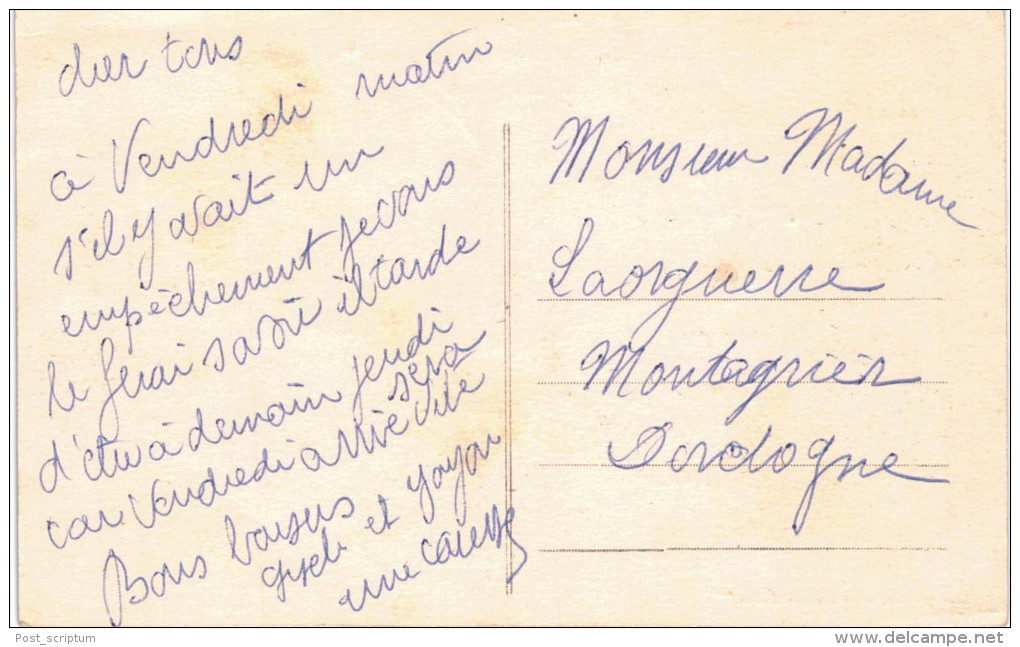 cher tous
à Vendredi matin
s'il y avait un
empêchement je vous
le ferai savoir il tarde
d'être à demain jeudi
car Vendredi arrivé sera vite
Bons baisers
et yoyou
une caresse
Monsieur Madame
Laorguerre
Montagrier
Dordogne
Post_scriptum
www.delcampe.net